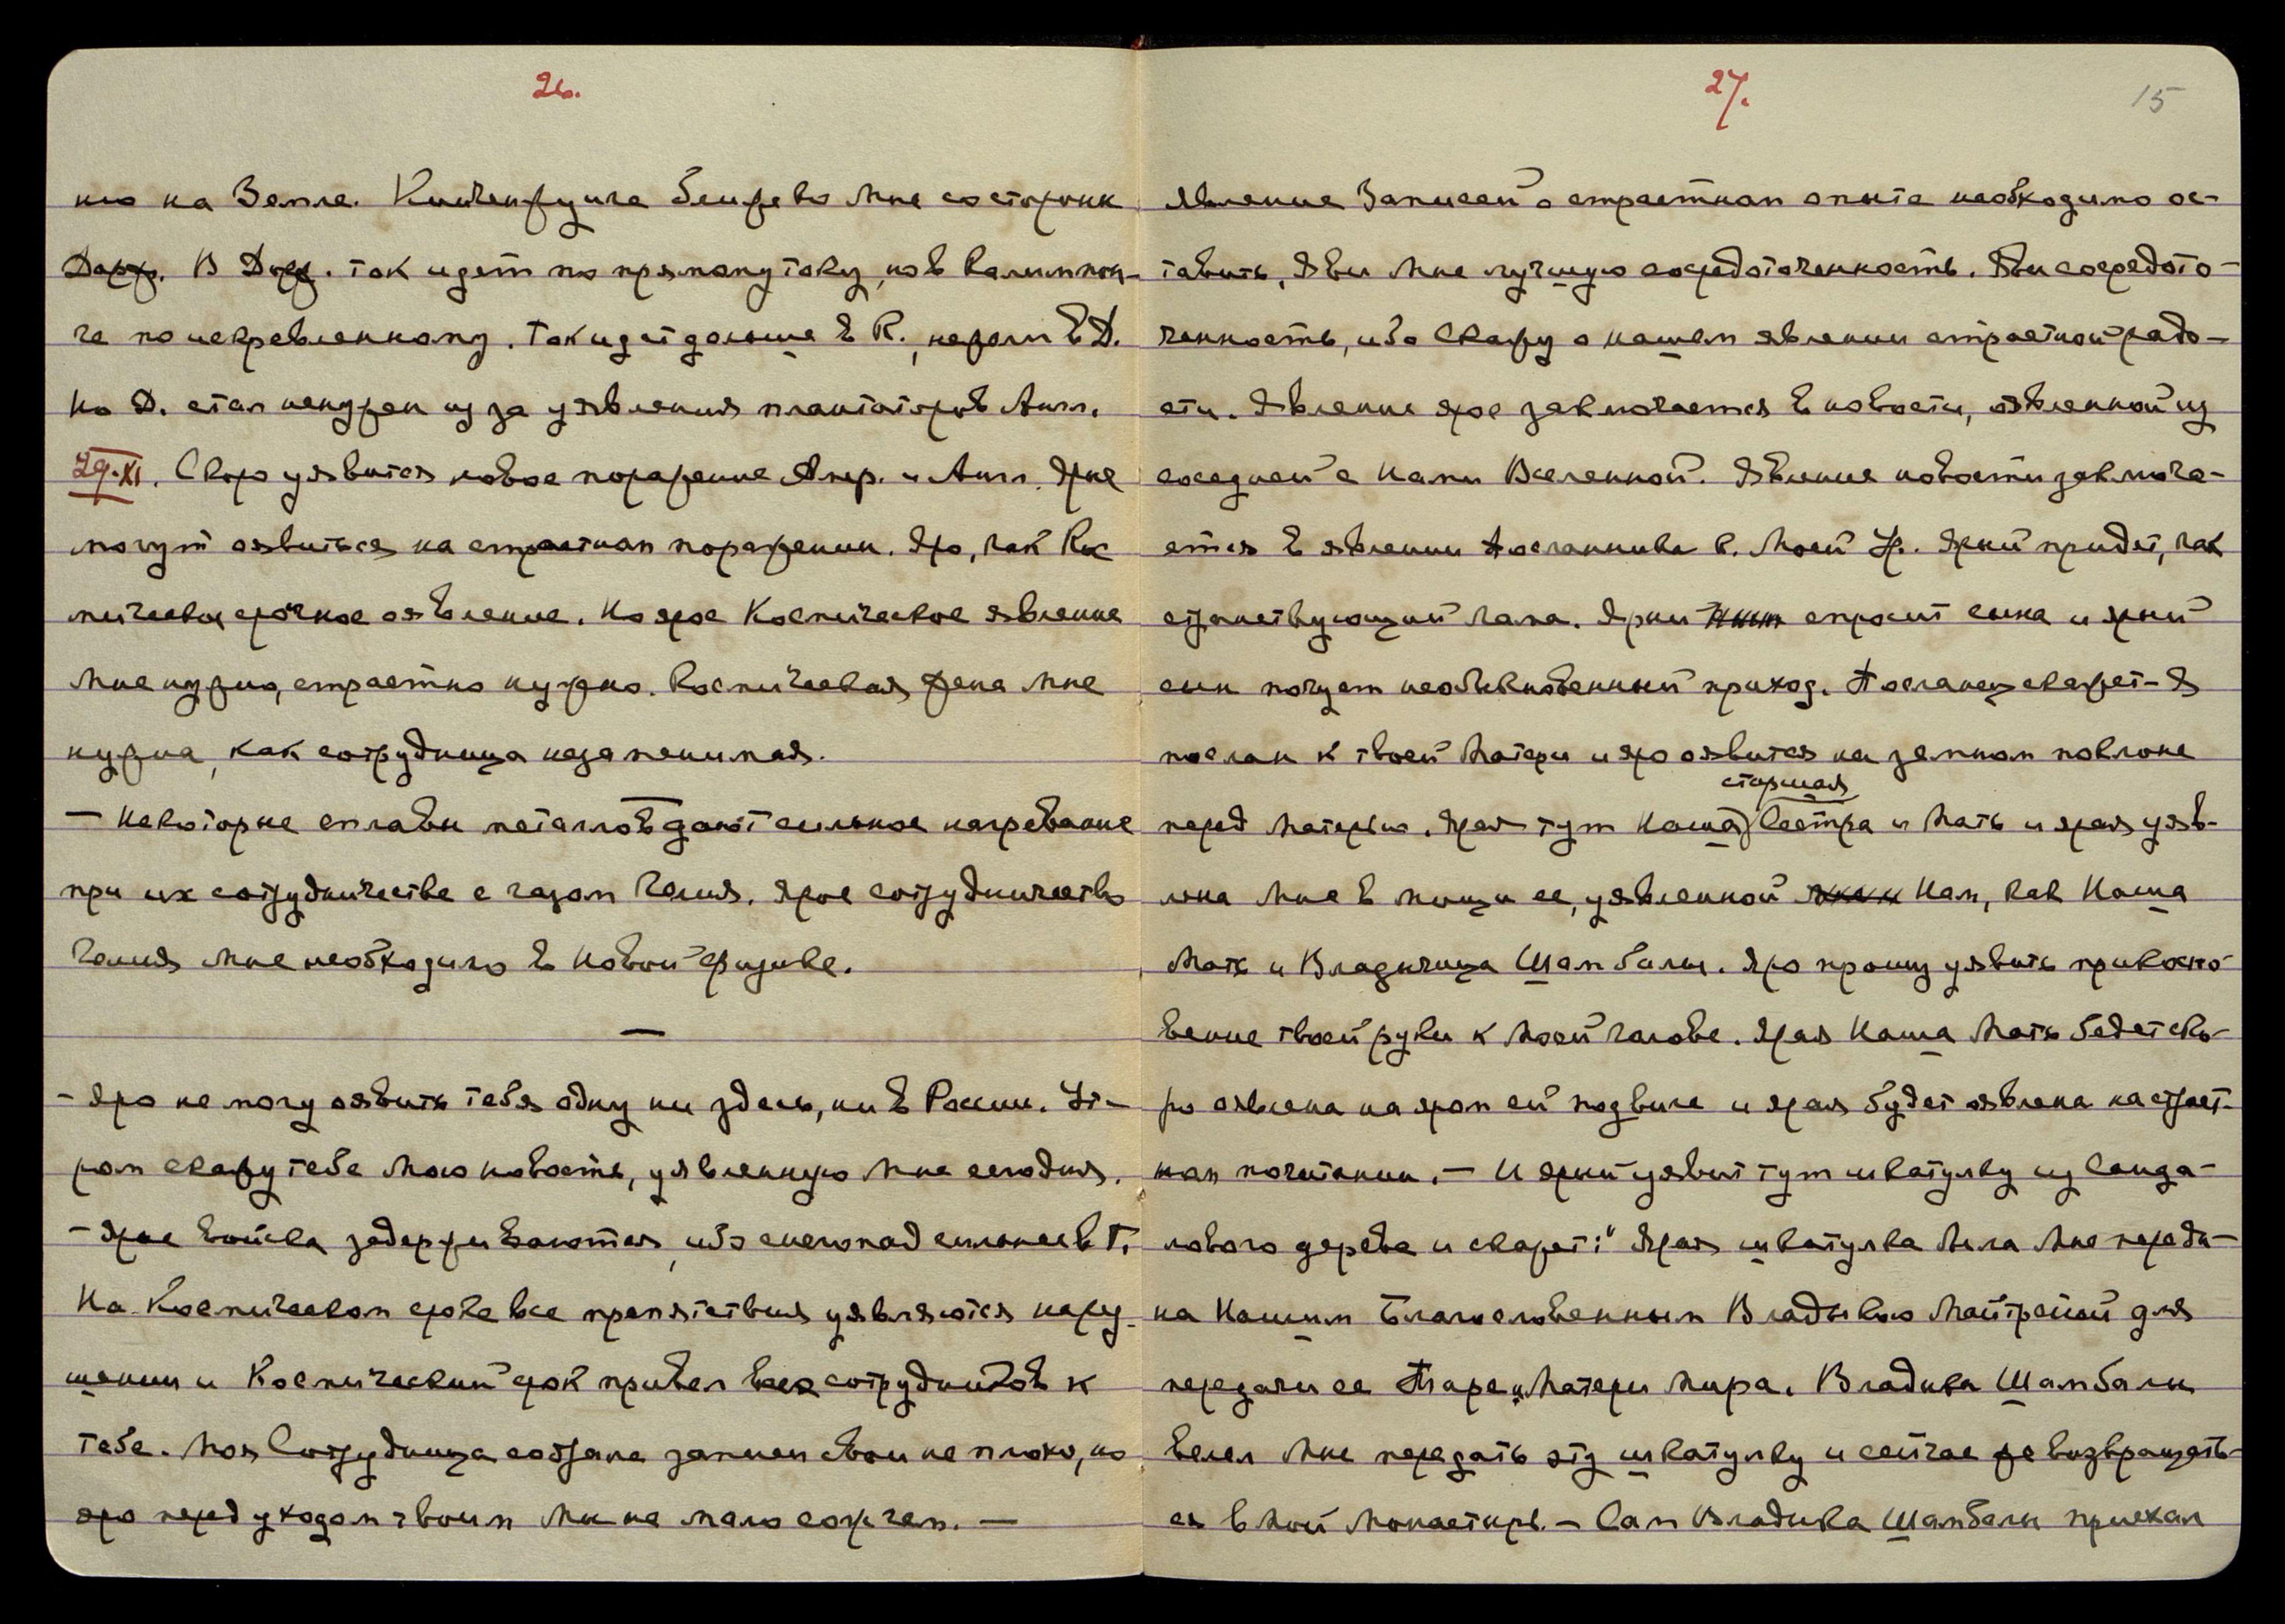 26.
нию на Земле. Кинченджунга ближе ко Мне со стороны
Дардж. В Дард. ток идет по прямому току, но в Калимпон-
ге по искривленному. Ток идет дольше в К., нежели в Д.
Но Д. стал ненужен из за уявления плантаторов Англ.
29.XI. Скоро уявится новое поражение Амер. и Англ. Ярые
могут оявиться на страстном поражении. Яро, как Кос
мическое срочное оявление. Но ярое Космическое явление
Мне нужно, страстно нужно. Космическая Жена Мне
нужна, как сотрудница незаменимая.
— Некоторые сплавы металлов дают сильное нагревание
при их сотрудничестве с газом Гелия. Ярое сотрудничество
Гелия Мне необходимо в Новой физике.
—
- Яро не могу оявить тебя одну ни здесь, ни в России. Ут-
ром скажу тебе Мою новость, уявленную Мне сегодня.
- Ярые войска задерживаются, ибо снегопад сильнее в Г.
На Космическом сроке все препятствия уявляются нару-
шении и Космический срок привел всех сотрудников к
тебе. Моя Сотрудница собрана записи свои не плохо, но
яро перед уходом твоим Мы не мало сожжем. —
27.
15
Явление Записей о страстном опыте необходимо ос-
тавить. Яви Мне лучшую сосредоточенность. Яви сосредото-
ченность, ибо Скажу о нашем явлении страстной радо-
сти. Явление ярое заключается в новости, оявленной из
соседней с Нами Вселенной. Явление новости заключа-
ется в явлении посланника к Моей Ур. Ярый придет, как
странствующий Лама. Ярый спросит сына и ярый
сын почует необыкновенный приход. Посланец скажет - Я
послан к твоей Матери и яро оявится на земном поклоне
старшая
перед Матерью. Ярая тут Наша Сестра и Мать и ярая уяв-
лена Мне в мощи ее, уявленной Нам, как Наша
Мать и Владычица Шамбалы. Яро прошу уявить прикосно-
вение твоей руки к Моей голове. Ярая Наша Мать будет ско-
ро оявлена на яром ей подвиге и ярая будет оявлена на страст-
ном почитании. — И ярый уявит тут шкатулку из Санда-
лового дерева и скажет: "Ярая шкатулка была Мне переда-
на Нашим Благословенным Владыкою Майтрейей для
передачи ее Таре и Матери Мира. Владыка Шамбалы
велел Мне передать эту шкатулку и сейчас же возвращать-
ся в Мой Монастырь. — Сам Владыка Шамбалы приехал